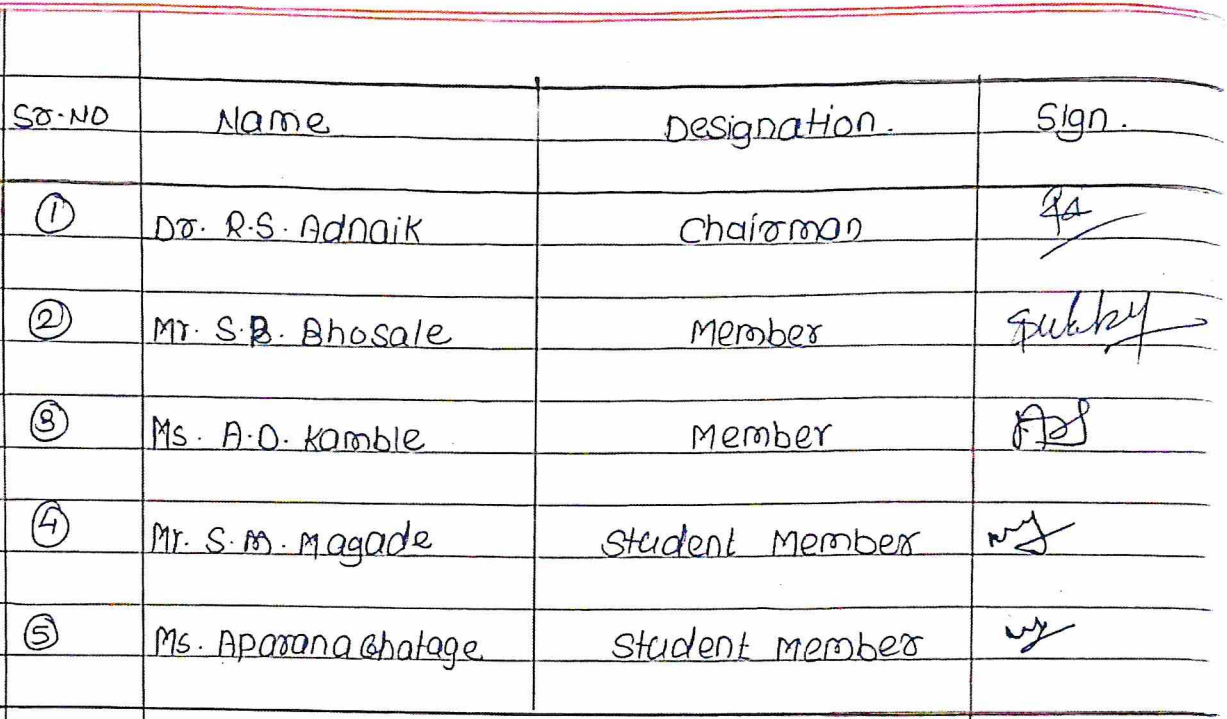 Sr.NO Name Designation. Sign.
① Dr. R.S. Adnaik Chairman
② Mr. S.B. Bhosale Member
③ Ms. A.D. Kamble Member
④ Mr. S.M. Magade Student Member
⑤ Ms. Aparana Student Member